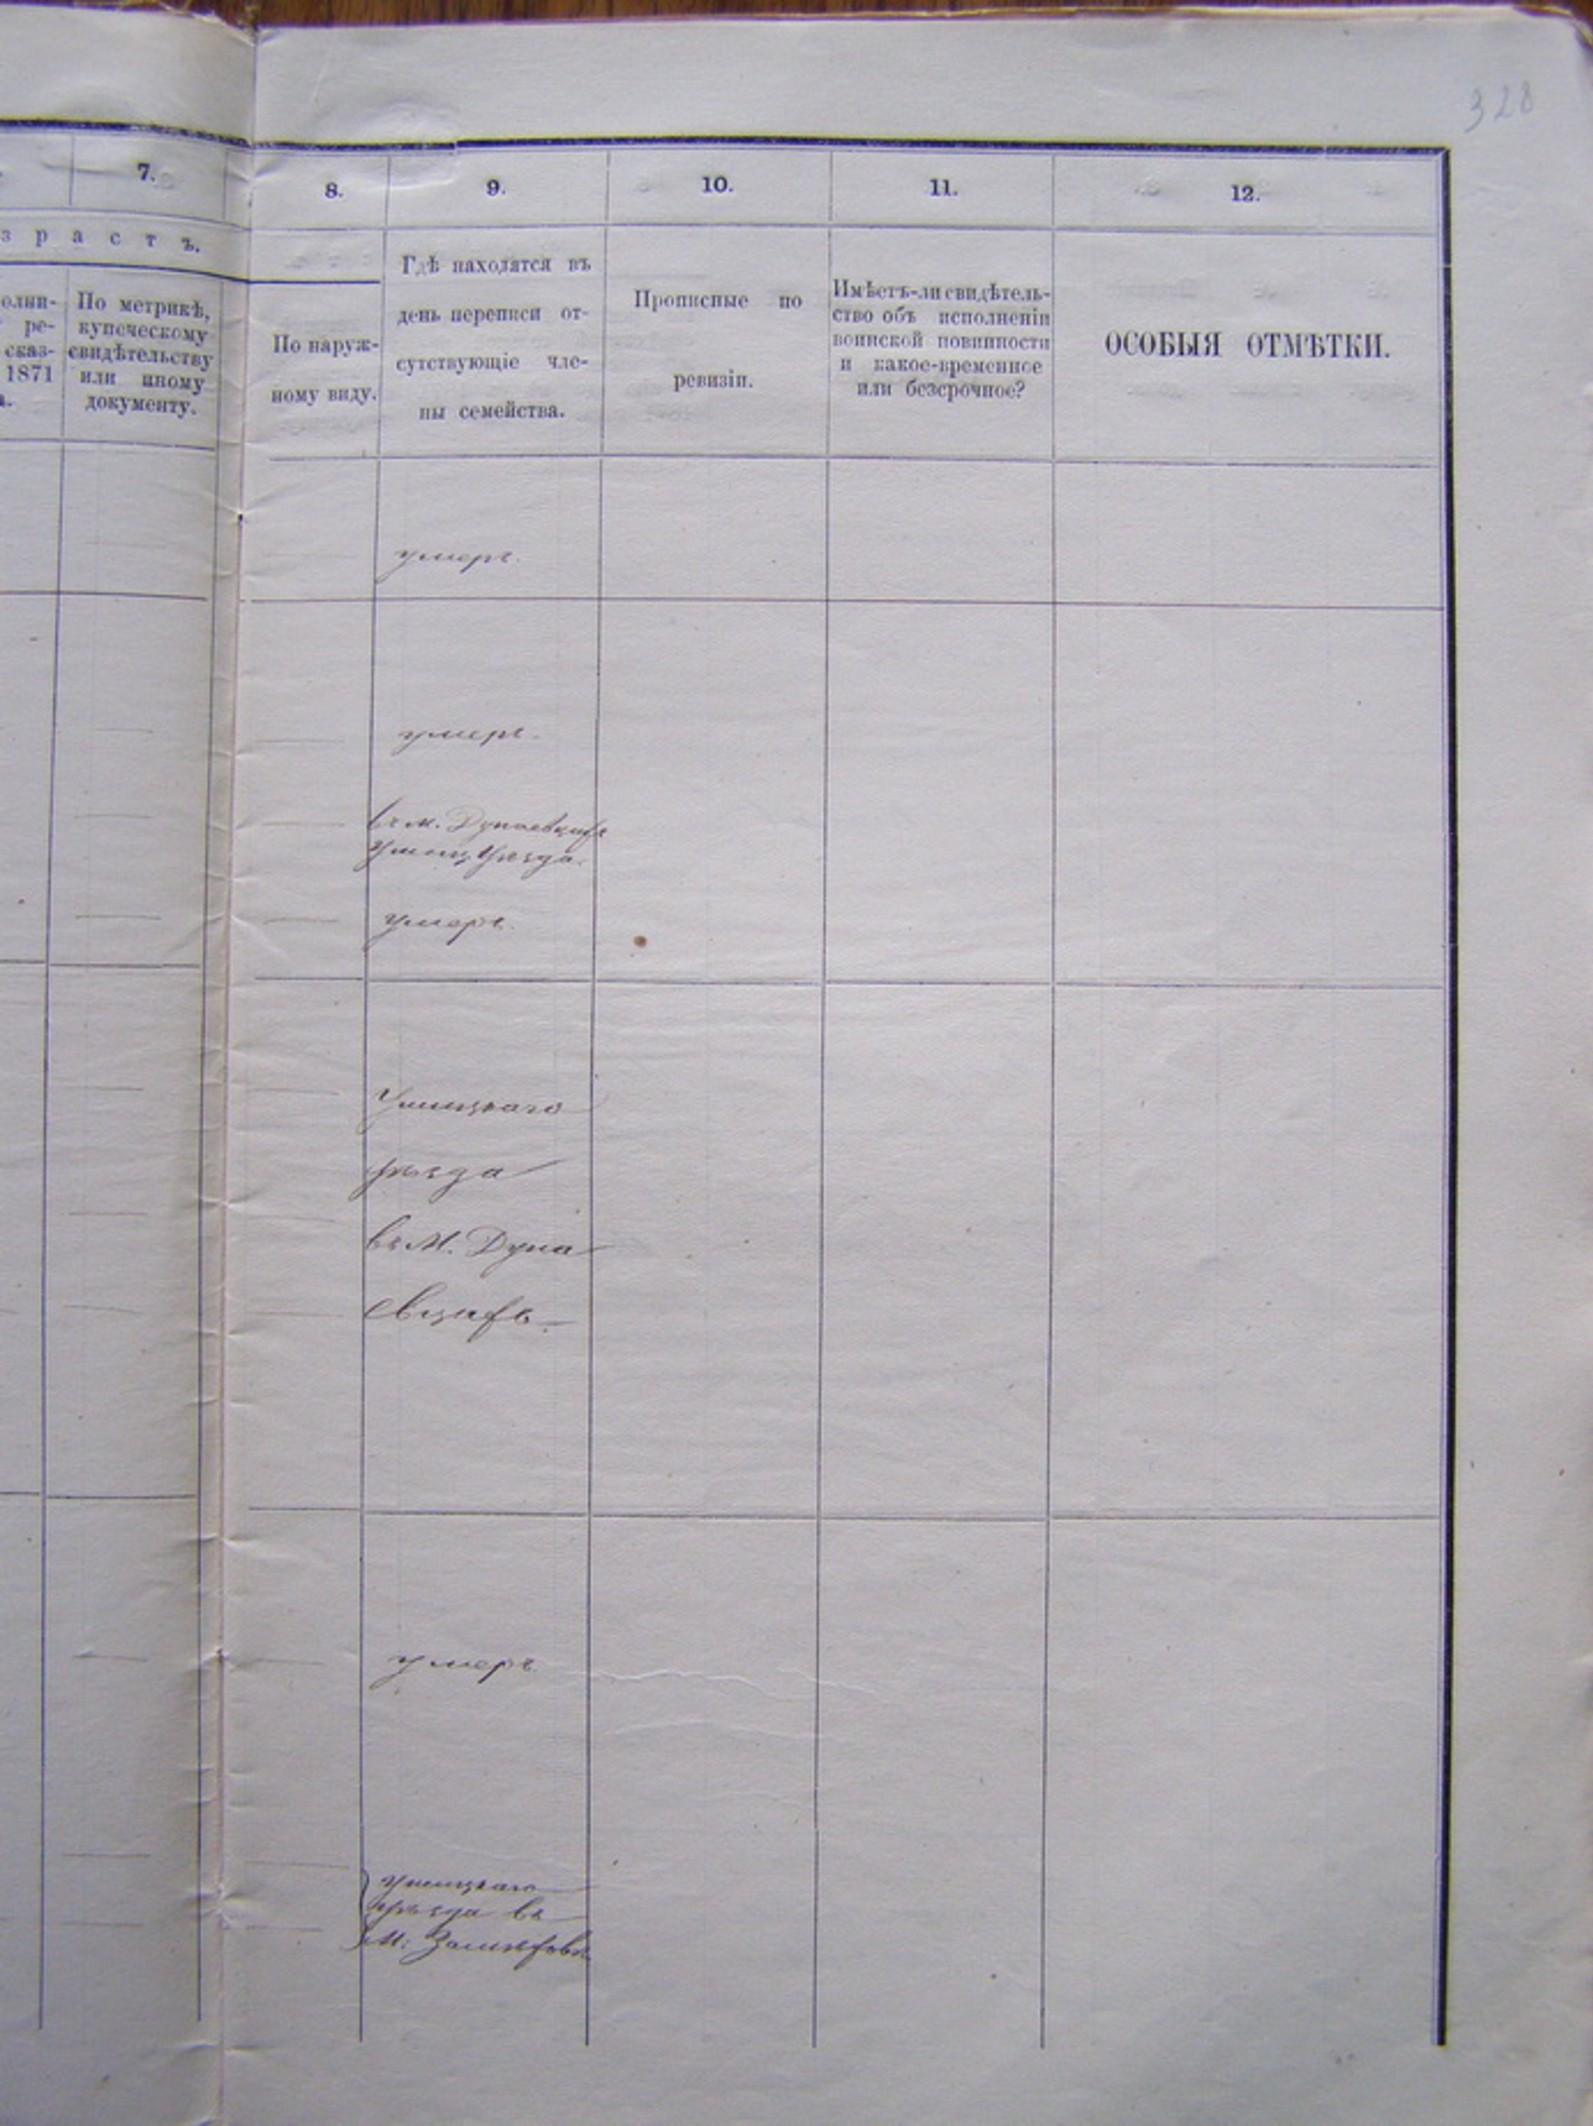 328
7.
8.
9.
10.
11.
12.
з р а с т ъ.
олни-
ре-
сказ-
1871
По метрикѣ,
купеческому
свидѣтельству
или иному
документу.
По наруж-
ному виду.
Гдѣ находятся въ
день переписи от-
сутствующіе чле-
ны семейства.
Прописные по
ревизіи.
Имѣетъ-ли свидѣтель-
ство объ исполненіи
воинской повинности
и какое-временное
или безсрочное?
ОСОБЫЯ ОТМѢТКИ.
умеръ.
умеръ.
въ м. Дунаевцахъ
Ушиц. Уѣзда.
умеръ.
Ушицкаго
уѣзда
въ М. Дуна
евцахъ.
умеръ
Ушицкаго
уѣзда въ
М: